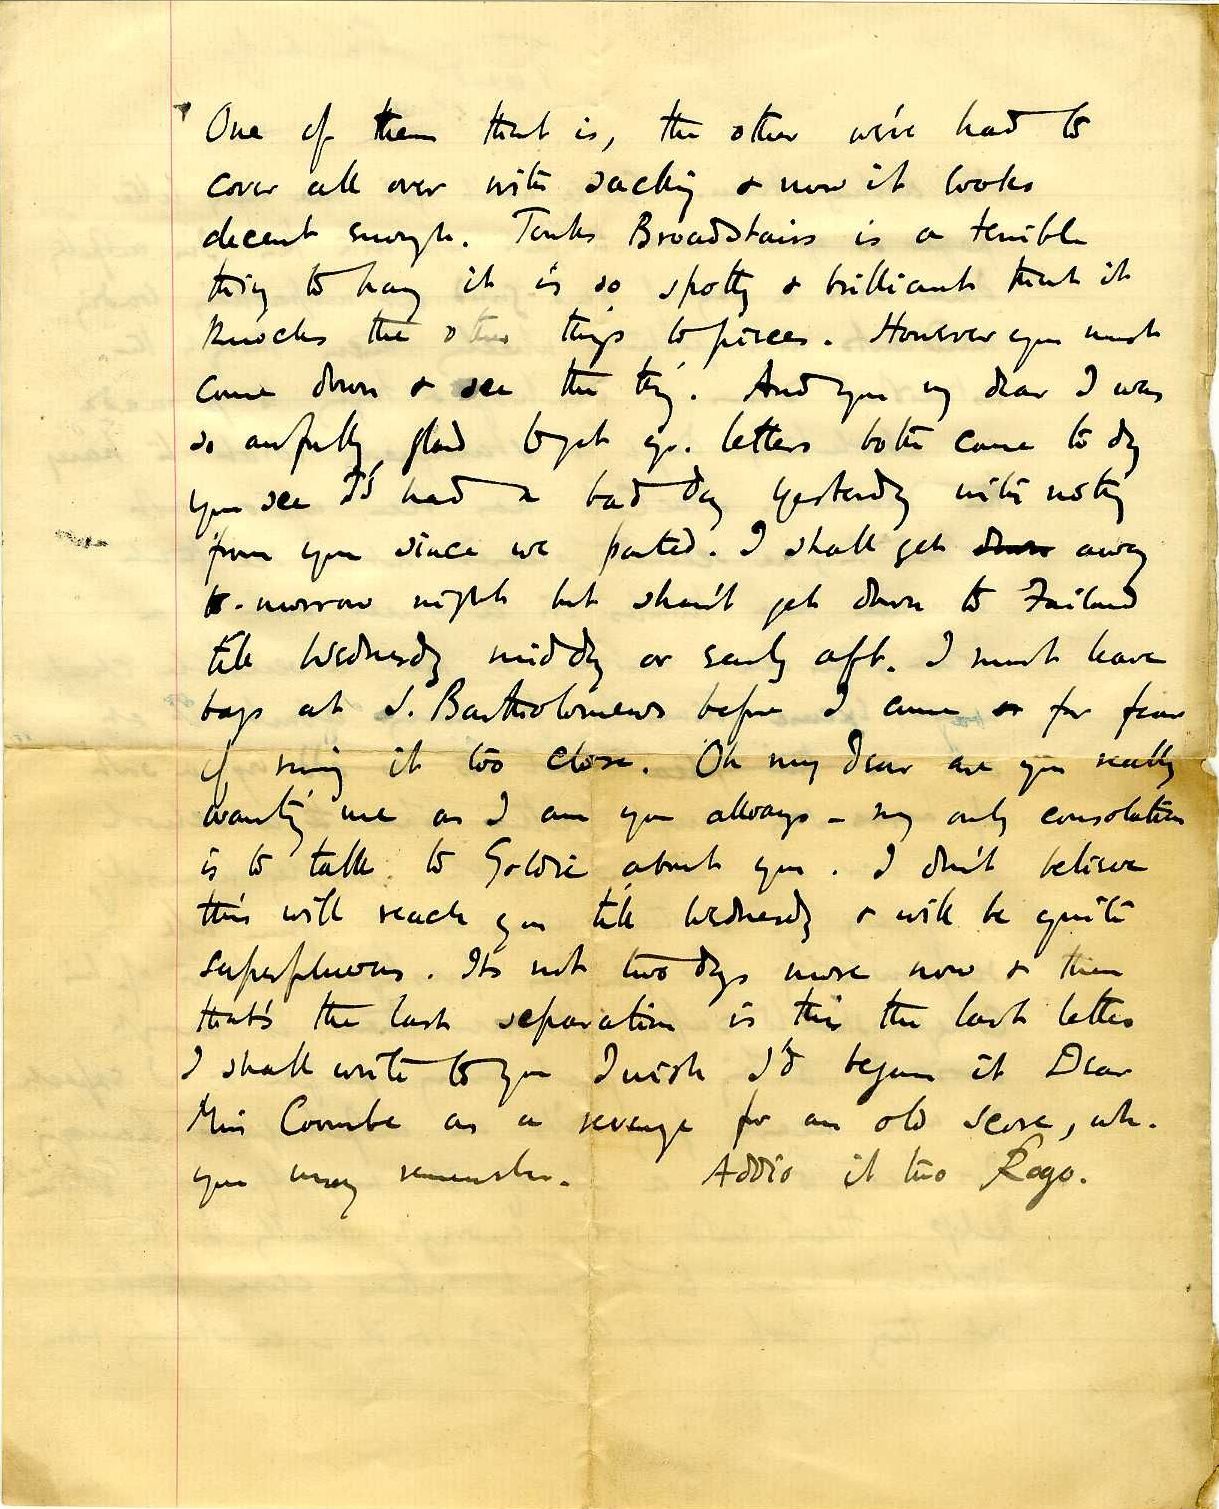 One of them that is, the other we've had to
cover all over with sacking & now it looks
decent enough. Tonks Broadstairs is a terrible
thing to hang it is so spotty & brilliant that it
knocks the other things to pieces. However you must
come down & see the thing. And you my dear I was
so awfully glad to get yr. letters both came to day
you see I'd had a bad day yesterday with nothing
from you since we parted. I shall get down away
to-morrow night but shan't get down to Failand
till Wednesday midday or early aft. I must leave
bags at S. Bartholomews before I come or for fear
of running it too close. Oh my Dear are you really
wanting me as I am you always – my only consolation
is to talk to Goldie about you. I don't believe
this will reach you till Wednesday & will be quite
superfluous. Its not two days more now & then
that's the last separation is this the last letter
I shall write to you I wish I'd begun it Dear
Miss Coombe as a revenge for an old score, wh.
you may remember. Addio il tuo Rogo.